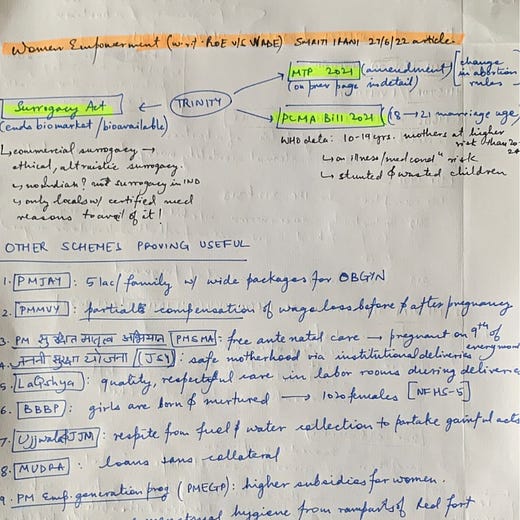 Women Empowerment (w.r.t. ROE V/S WADE) SMRITI IRANI 27/6/22 article.
MTP 2021 (amendment) [change in abortion rules]
(on prev page in detail)
Surrogacy Act ← TRINITY
(ends biomarket / bioavailable)
PCMA Bill 2021 (18 → 21 marriage age)
WHO data: 10-19 yrs. mothers at higher risk than 20-24
↳ commercial surrogacy →
ethical, altruistic surrogacy.
↳ on illness / med condn risk
↳ stunted & wasted children
↳ no indian? not surrogacy in IND
↳ only locals w/ certified med
reasons to avail of it!
OTHER SCHEMES PROVING USEFUL
1. PMJAY : 5 lac / family w/ wide packages for OBGYN
2. PMMVY : partial compensation of wage loss before & after pregnancy
3. PM सुरक्षित मातृत्व अभियान (PMSMA) : free antenatal care → pregnant on 9th of every month
4. जननी सुरक्षा योजना (JSY) : safe motherhood via institutional deliveries
5. LaQshya : quality, respectful care in labor rooms during deliveries
6. BBBP : girls are born & nurtured → 1020 females [NFHS-5]
7. Ujjwala & JJM : respite from fuel & water collection to partake gainful acts
8. MUDRA : loans sans collateral
9. PM Emp. generation prog (PMEGP) : higher subsidies for women.
menstrual hygiene from ramparts of Red fort